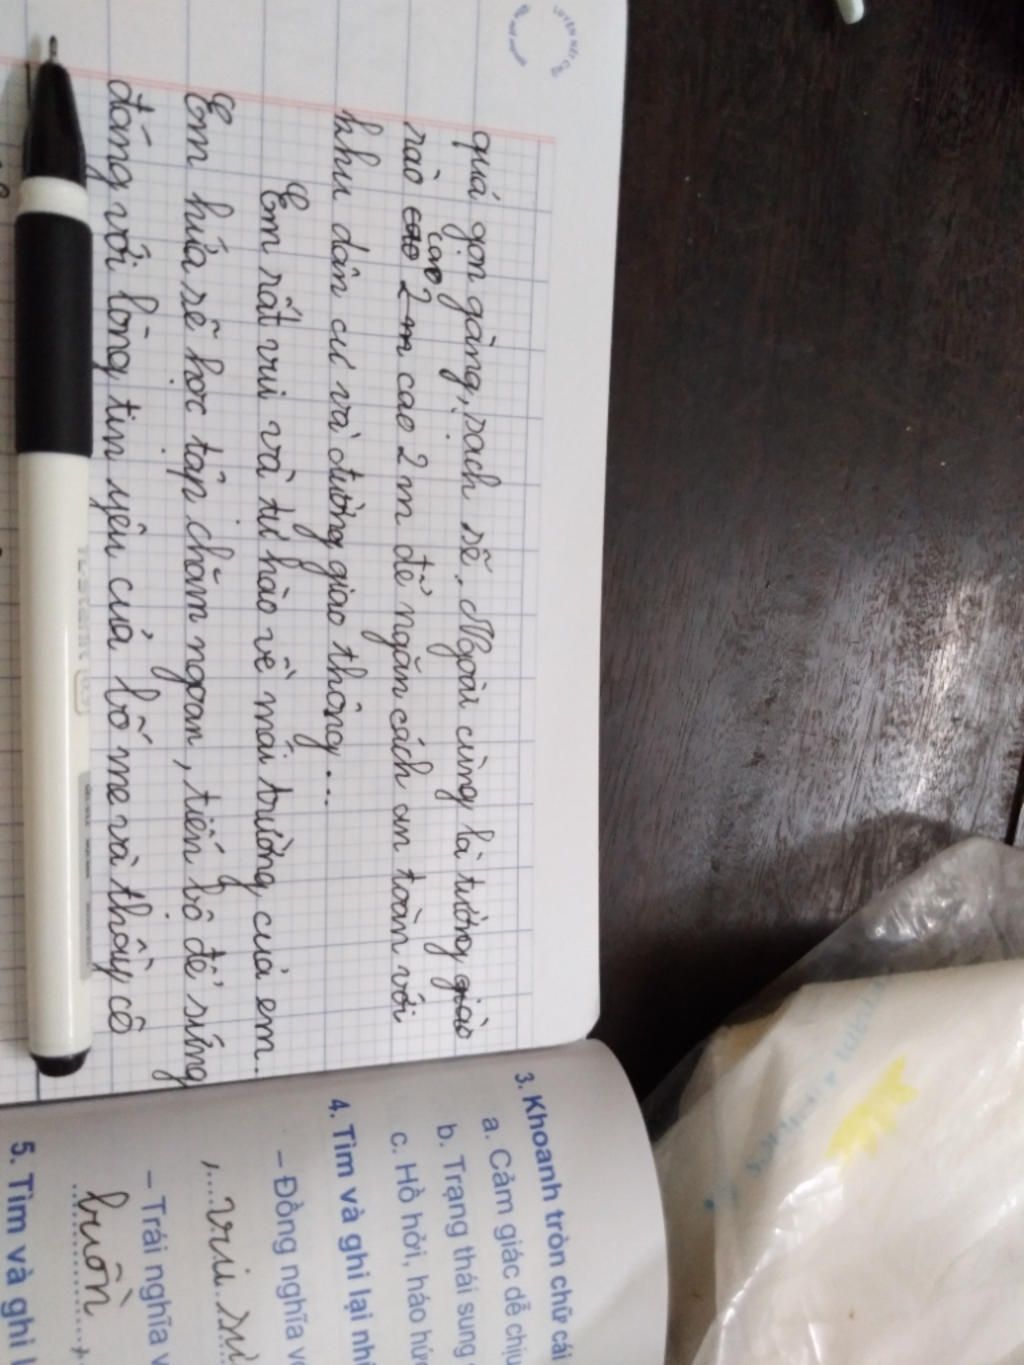 quá gọn gàng, sạch sẽ. Ngoài cùng là tường giào
rào cao 2 m cao 2 m để ngăn cách an toàn với
cao
khu dân cư và đường giao thông...
Em rất vui và tự hào về mái trường của em.
Em hứa sẽ học tập chăm ngoan, tiến bộ để xứng
đáng với lòng tin yêu của bố mẹ và thầy cô
3. Khoanh tròn chữ cái
a. Cảm giác dễ chịu
b. Trạng thái sung
c. Hồ hởi, háo hức
4. Tìm và ghi lại nhi
– Đồng nghĩa v
vui
– Trái nghĩa v
buồn
5. Tìm và ghi l